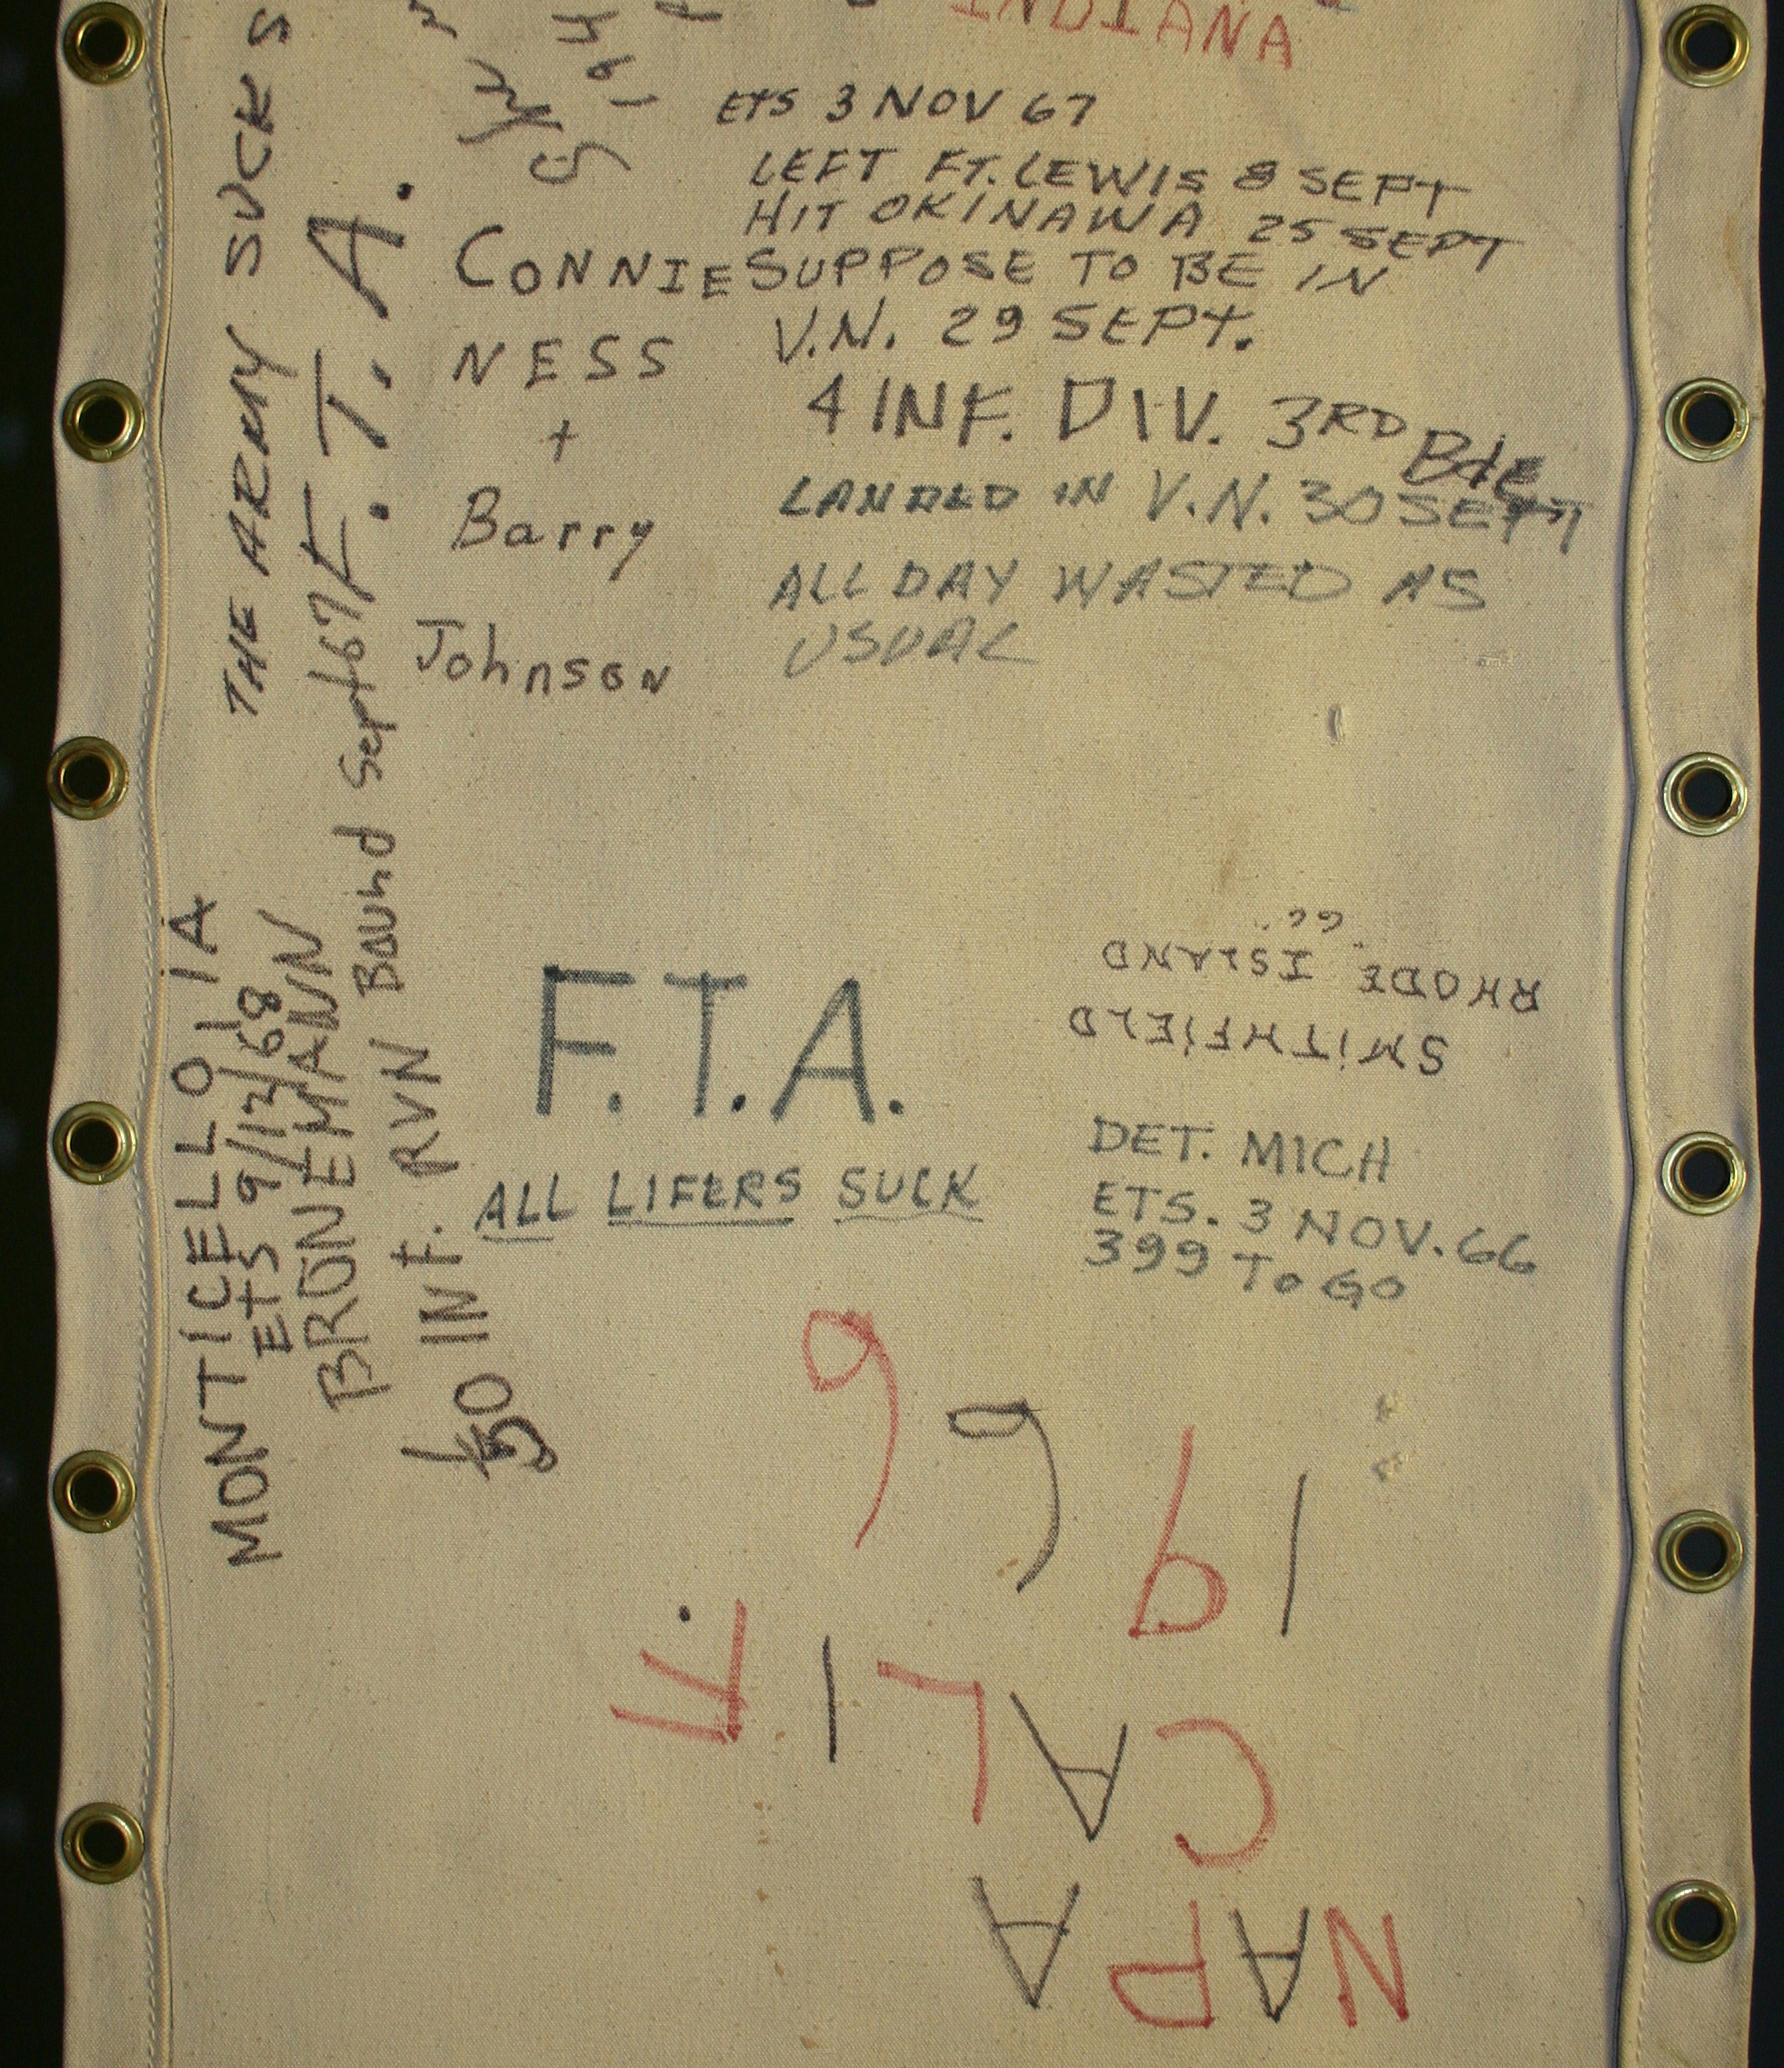 INDIANA
ETS 3 NOV 67
LEFT FT. LEWIS 8 SEPT
HIT OKINAWA 25 SEPT
SUPPOSE TO BE IN
V.N. 29 SEPT.
4 INF. DIV. 3RD BdE
LANDED IN V.N. 30 SEPT
ALL DAY WASTED AS
USUAL
CONNIE
NESS
+
Barry
Johnson
THE ARMY SUCKS
F.T.A.
MONTICELLO IA
ETS 9/12/68
BRONEMANN
RVN Bound Sept 67
50 INF.
F.T.A.
ALL LIFERS SUCK
SMITHFIELD
RHODE ISLAND
"66"
DET. MICH
ETS. 3 NOV. 66
399 TO GO
NAPA
CALIF.
1966